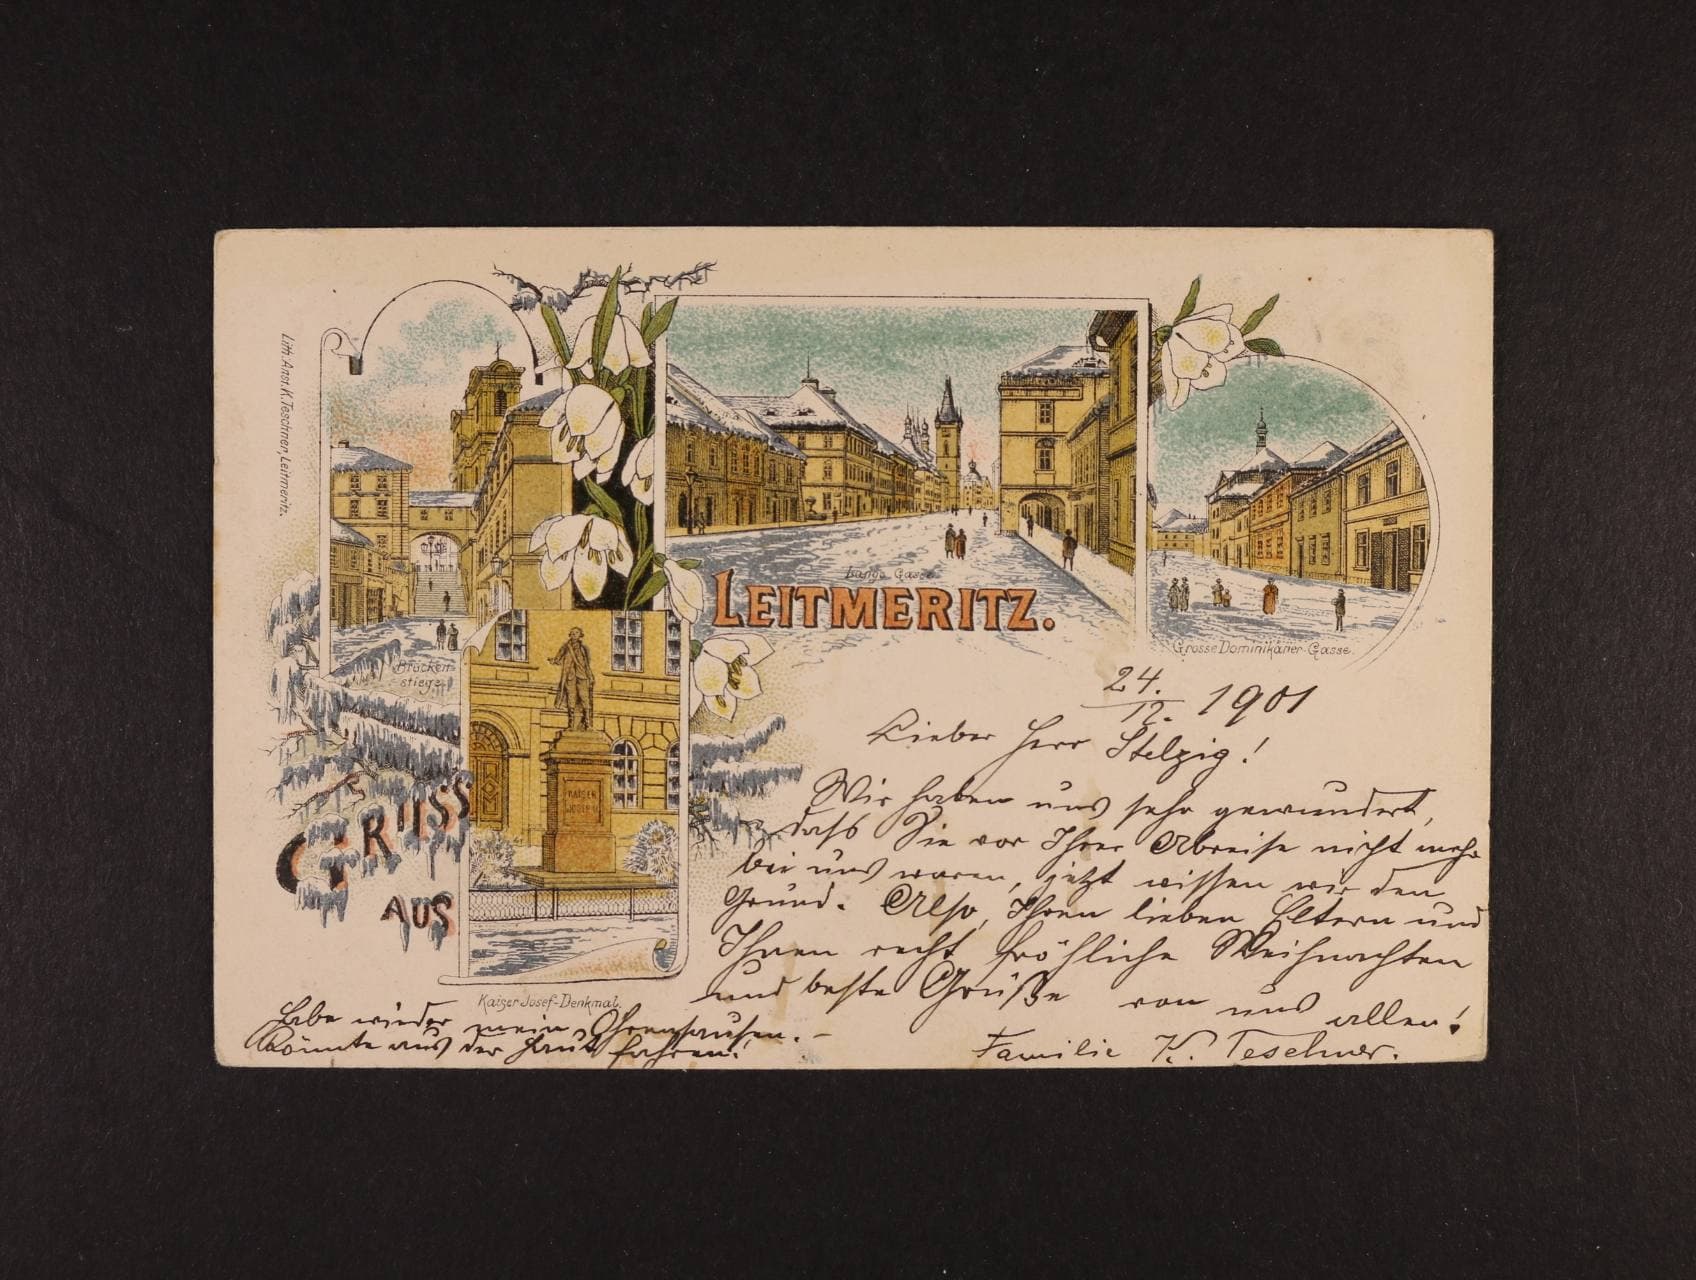 Lith. Anst. K. Teschner, Leitmeritz.
Brücken-
stiege
Lange Gasse
LEITMERITZ.
Grosse Dominikaner-Gasse.
GRUSS
AUS
KAISER
JOSEF II.
Kaiser Josef-Denkmal.
24./12. 1901
Lieber Herr Stelzig!
Wir haben uns sehr gewundert,
dass Sie vor Ihrer Abreise nicht mehr
bei uns waren, jetzt wissen wir den
Grund. Also, Ihren lieben Eltern und
Ihnen recht fröhliche Weihnachten
und beste Grüße von uns allen!
Familie K. Teschner.
Habe wieder mein Ohrensausen. –
Könnte aus der Haut fahren!